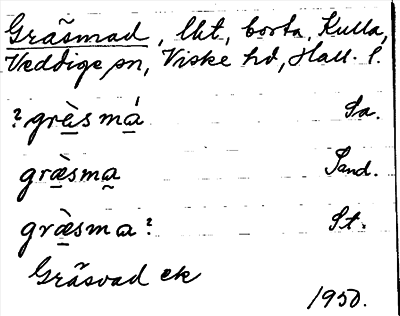 Gräsmad, lht, borta, Kulla,
Veddige sn, Viske hd, Hall. l.
?grès má Sa.
græ̀sma Sand.
græ̀sma? St.
Gräsvad ek
1950.